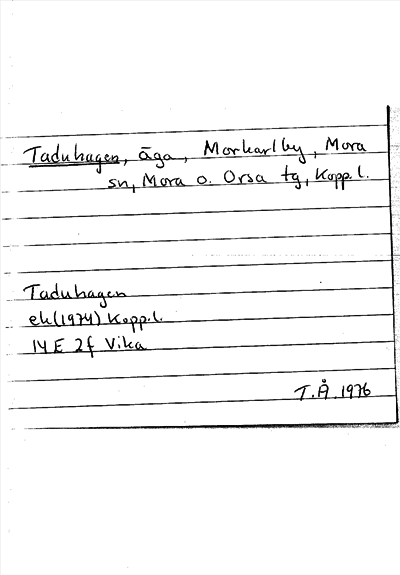 Taduhagen, äga, Morkarlby, Mora
sn, Mora o. Orsa tg, Kopp.l.
Taduhagen
ek(1974) Kopp.l.
14E 2f Vika
T.Å. 1976